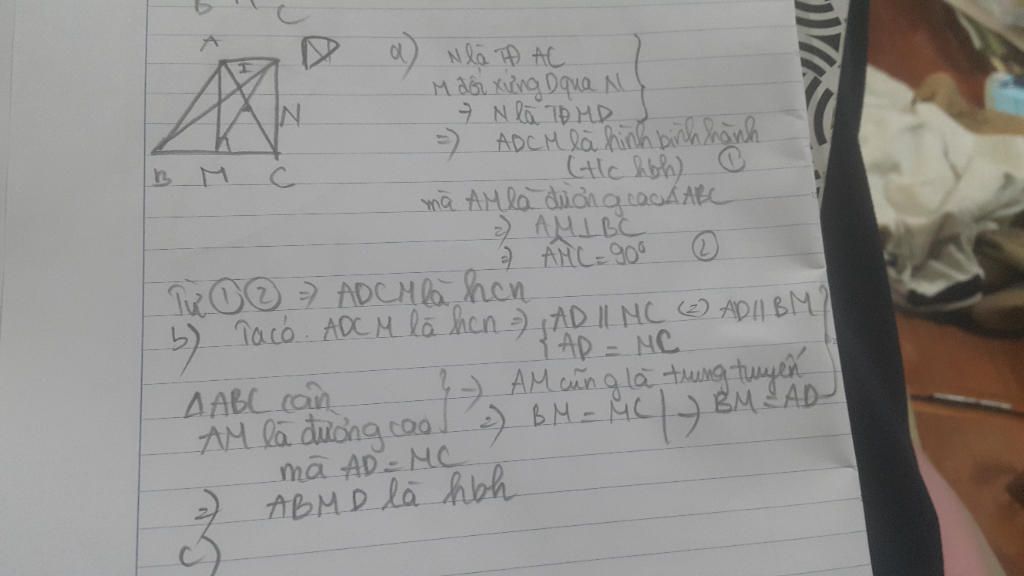 B M C
A
I
N
B M C
a) N là TĐ AC
M đối xứng D qua N
=> N là TĐ MD
=> ADCM là hình bình hành
(t/c hbh) ①
mà AM là đường cao ΔABC
=> AM⊥BC
=> AMC = 90° ②
Từ ① ② => ADCM là hcn
b) Ta có. ADCM là hcn => { AD // MC (=) AD // BM
AD = MC
ΔABC cân
AM là đường cao } => AM cũng là trung tuyến
=> BM = MC | => BM = AD
mà AD = MC
=> ABMD là hbh
c)